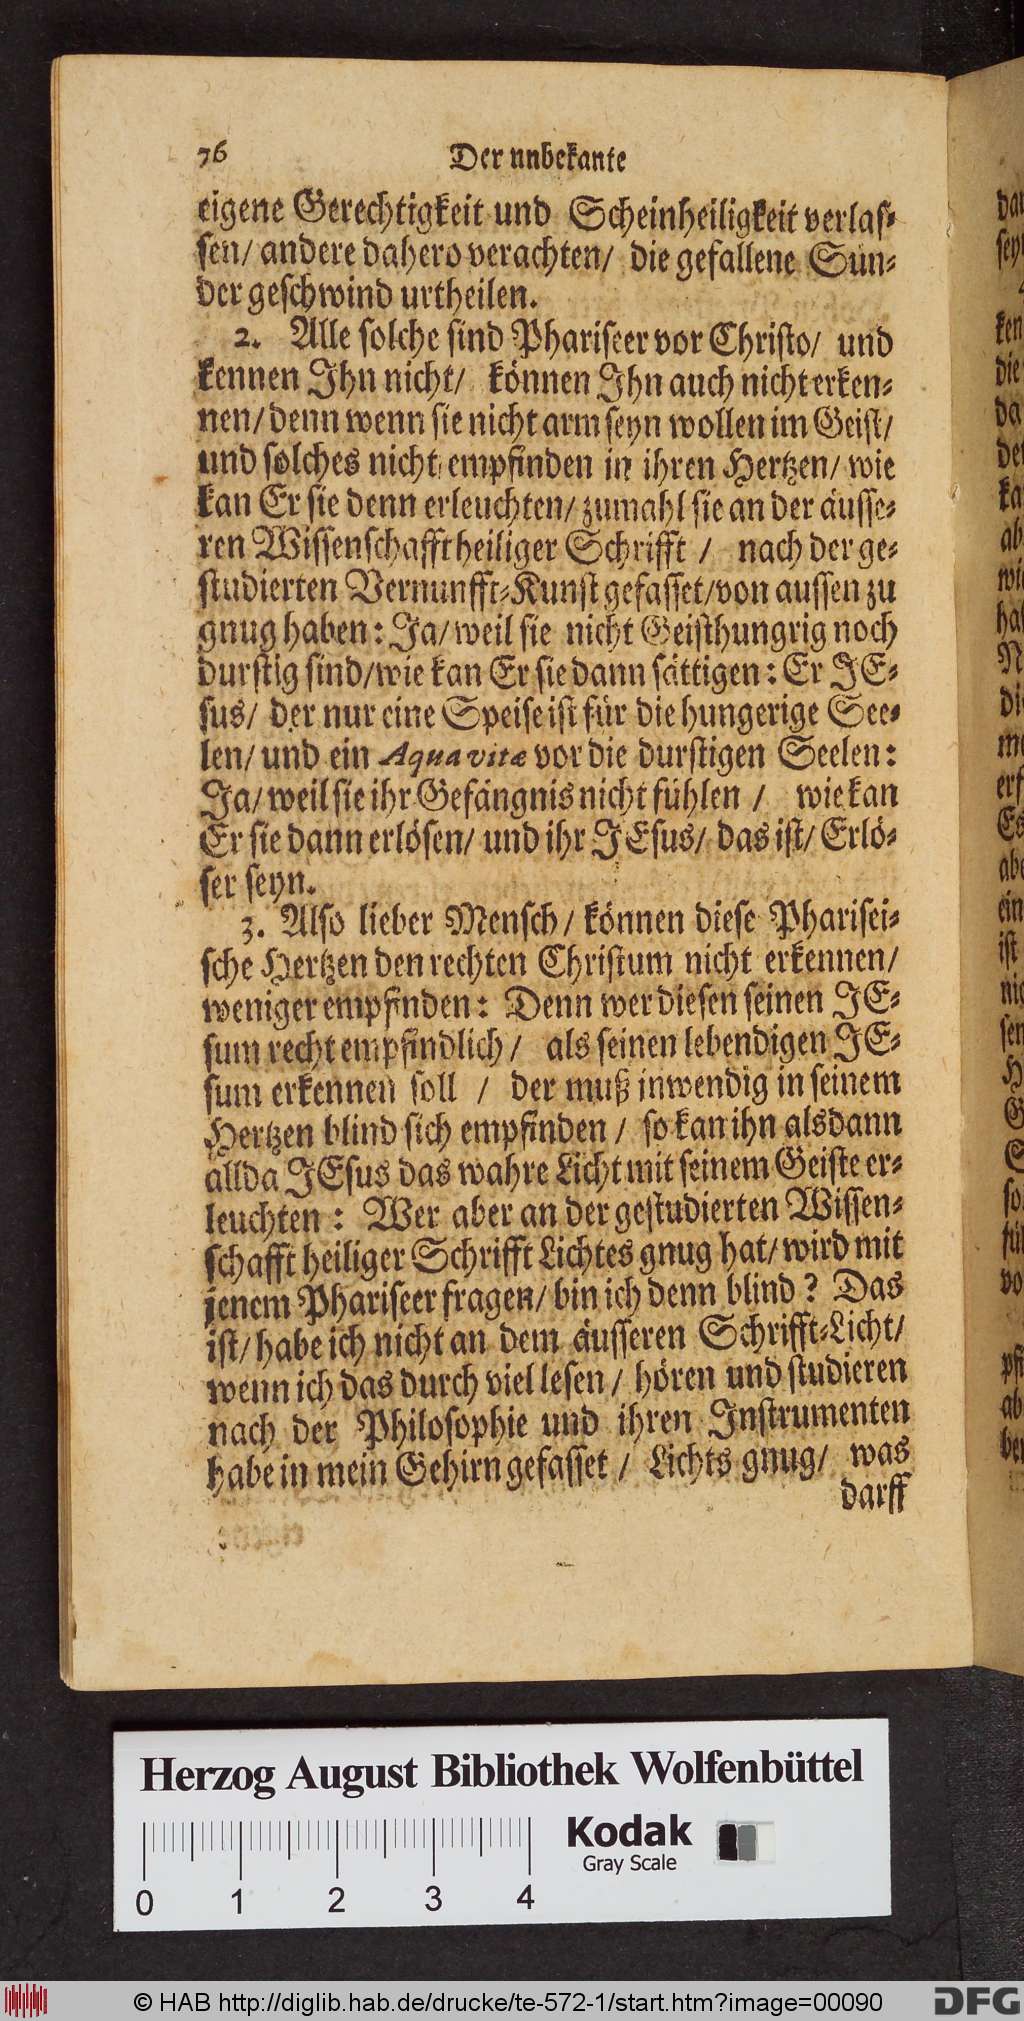 76 Der unbekante
eigene Gerechtigkeit und Scheinheiligkeit verlas-
sen/ andere dahero verachten/ die gefallene Sün-
der geschwind urtheilen.
2. Alle solche sind Phariseer vor Christo/ und
kennen Ihn nicht/ können Ihn auch nicht erken-
nen/ denn wenn sie nicht arm seyn wollen im Geist/
und solches nicht empfinden in ihren Hertzen/ wie
kan Er sie denn erleuchten/ zumahl sie an der äusse-
ren Wissenschafft heiliger Schrifft / nach der ge-
studierten Vernunfft-Kunst gefasset/ von aussen zu
gnug haben: Ja/ weil sie nicht Geisthungrig noch
durstig sind/ wie kan Er sie dann sättigen: Er JE-
sus/ der nur eine Speise ist für die hungerige See-
len/ und ein Aqua vitæ vor die durstigen Seelen:
Ja/ weil sie ihr Gefängnis nicht fühlen / wie kan
Er sie dann erlösen/ und ihr JEsus/ das ist/ Erlö-
ser seyn.
3. Also lieber Mensch/ können diese Pharisei-
sche Hertzen den rechten Christum nicht erkennen/
weniger empfinden: Denn wer diesen seinen JE-
sum recht empfindlich / als seinen lebendigen JE-
sum erkennen soll / der muß inwendig in seinem
Hertzen blind sich empfinden / so kan ihn alsdann
allda JEsus das wahre Licht mit seinem Geiste er-
leuchten: Wer aber an der gestudierten Wissen-
schafft heiliger Schrifft Lichtes gnug hat/ wird mit
jenem Phariseer fragen/ bin ich denn blind? Das
ist/ habe ich nicht an dem äusseren Schrifft-Licht/
wenn ich das durch viel lesen/ hören und studieren
nach der Philosophie und ihren Instrumenten
habe in mein Gehirn gefasset / Lichts gnug/ was
darff
Herzog August Bibliothek Wolfenbüttel
Kodak
Gray Scale
0 1 2 3 4
© HAB http://diglib.hab.de/drucke/te-572-1/start.htm?image=00090
DFG